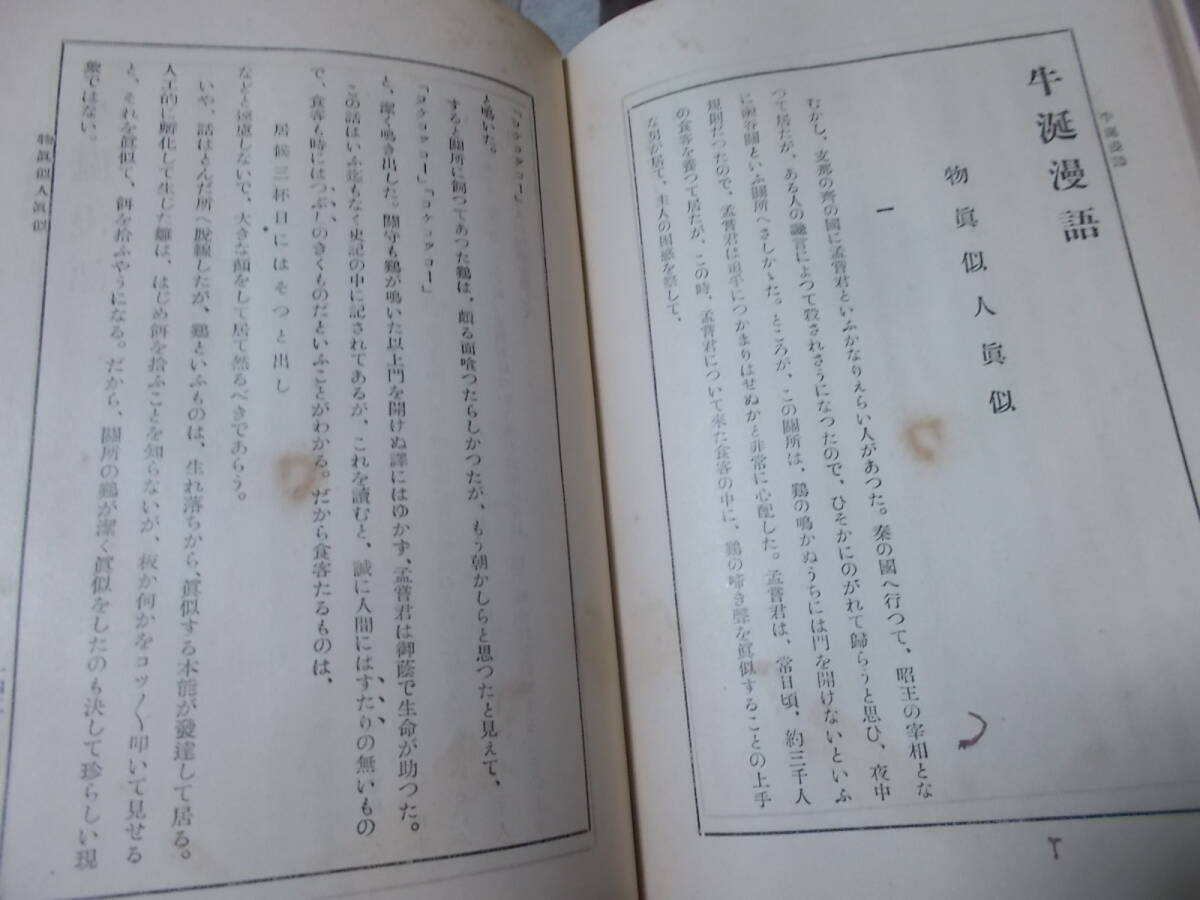 牛涎漫語
牛涎漫語
物眞似人眞似
一
むかし、支那の齊の國に孟嘗君といふかなりえらい人があつた。秦の國へ行つて、昭王の宰相とな
つて居たが、ある人の讒言によつて殺されさうになつたので、ひそかにのがれて歸らうと思ひ、夜中
に函谷關といふ關所へさしかゝた。ところが、この關所は、鷄の鳴かぬうちには門を開けないといふ
規則だつたので、孟嘗君は追手につかまりはせぬかと非常に心配した。孟嘗君は、常日頃、約三千人
の食客を養つて居たが、この時、孟嘗君について來た食客の中に、鷄の啼き聲を眞似することの上手
な男が居て、主人の困惑を察して、
「コケコツコー」
と鳴いた。
すると關所に飼つてあつた鷄は、頗る面喰つたらしかつたが、もう朝かしらと思つたと見えて、
「コケコツコー」「コケコツコー」
と、潔く鳴き出した。關守も鷄が鳴いた以上門を開けぬ譯にはゆかず、孟嘗君は御蔭で生命が助つた。
この話はいふ迄もなく史記の中に記されてあるが、これを讀むと、誠に人間にはすたりの無いもの
で、食客も時にはつぶしのきくものだといふことがわかる。だから食客たるものは、
居候三杯目にはそつと出し
などと遠慮しないで、大きな顏をして居て然るべきであらう。
いや、話はとんだ所へ脫線したが、鷄といふものは、生れ落ちから、眞似する本能が發達して居る。
人工的に孵化して生じた雛は、はじめ餌を拾ふことを知らないが、板か何かをコツ〳〵叩いて見せる
と、それを眞似て、餌を拾ふやうになる。だから、關所の鷄が潔く眞似をしたのも決して珍らしい現
象ではない。
物眞似人眞似